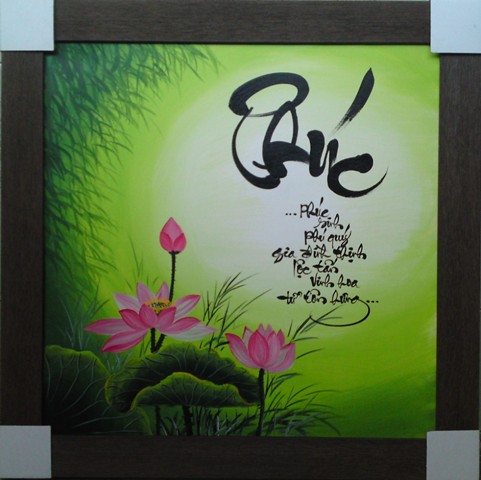 Phúc
...Phúc
sinh
phú quý
gia đình thịnh
lộc tấn
vinh hoa
tử tôn hưng...